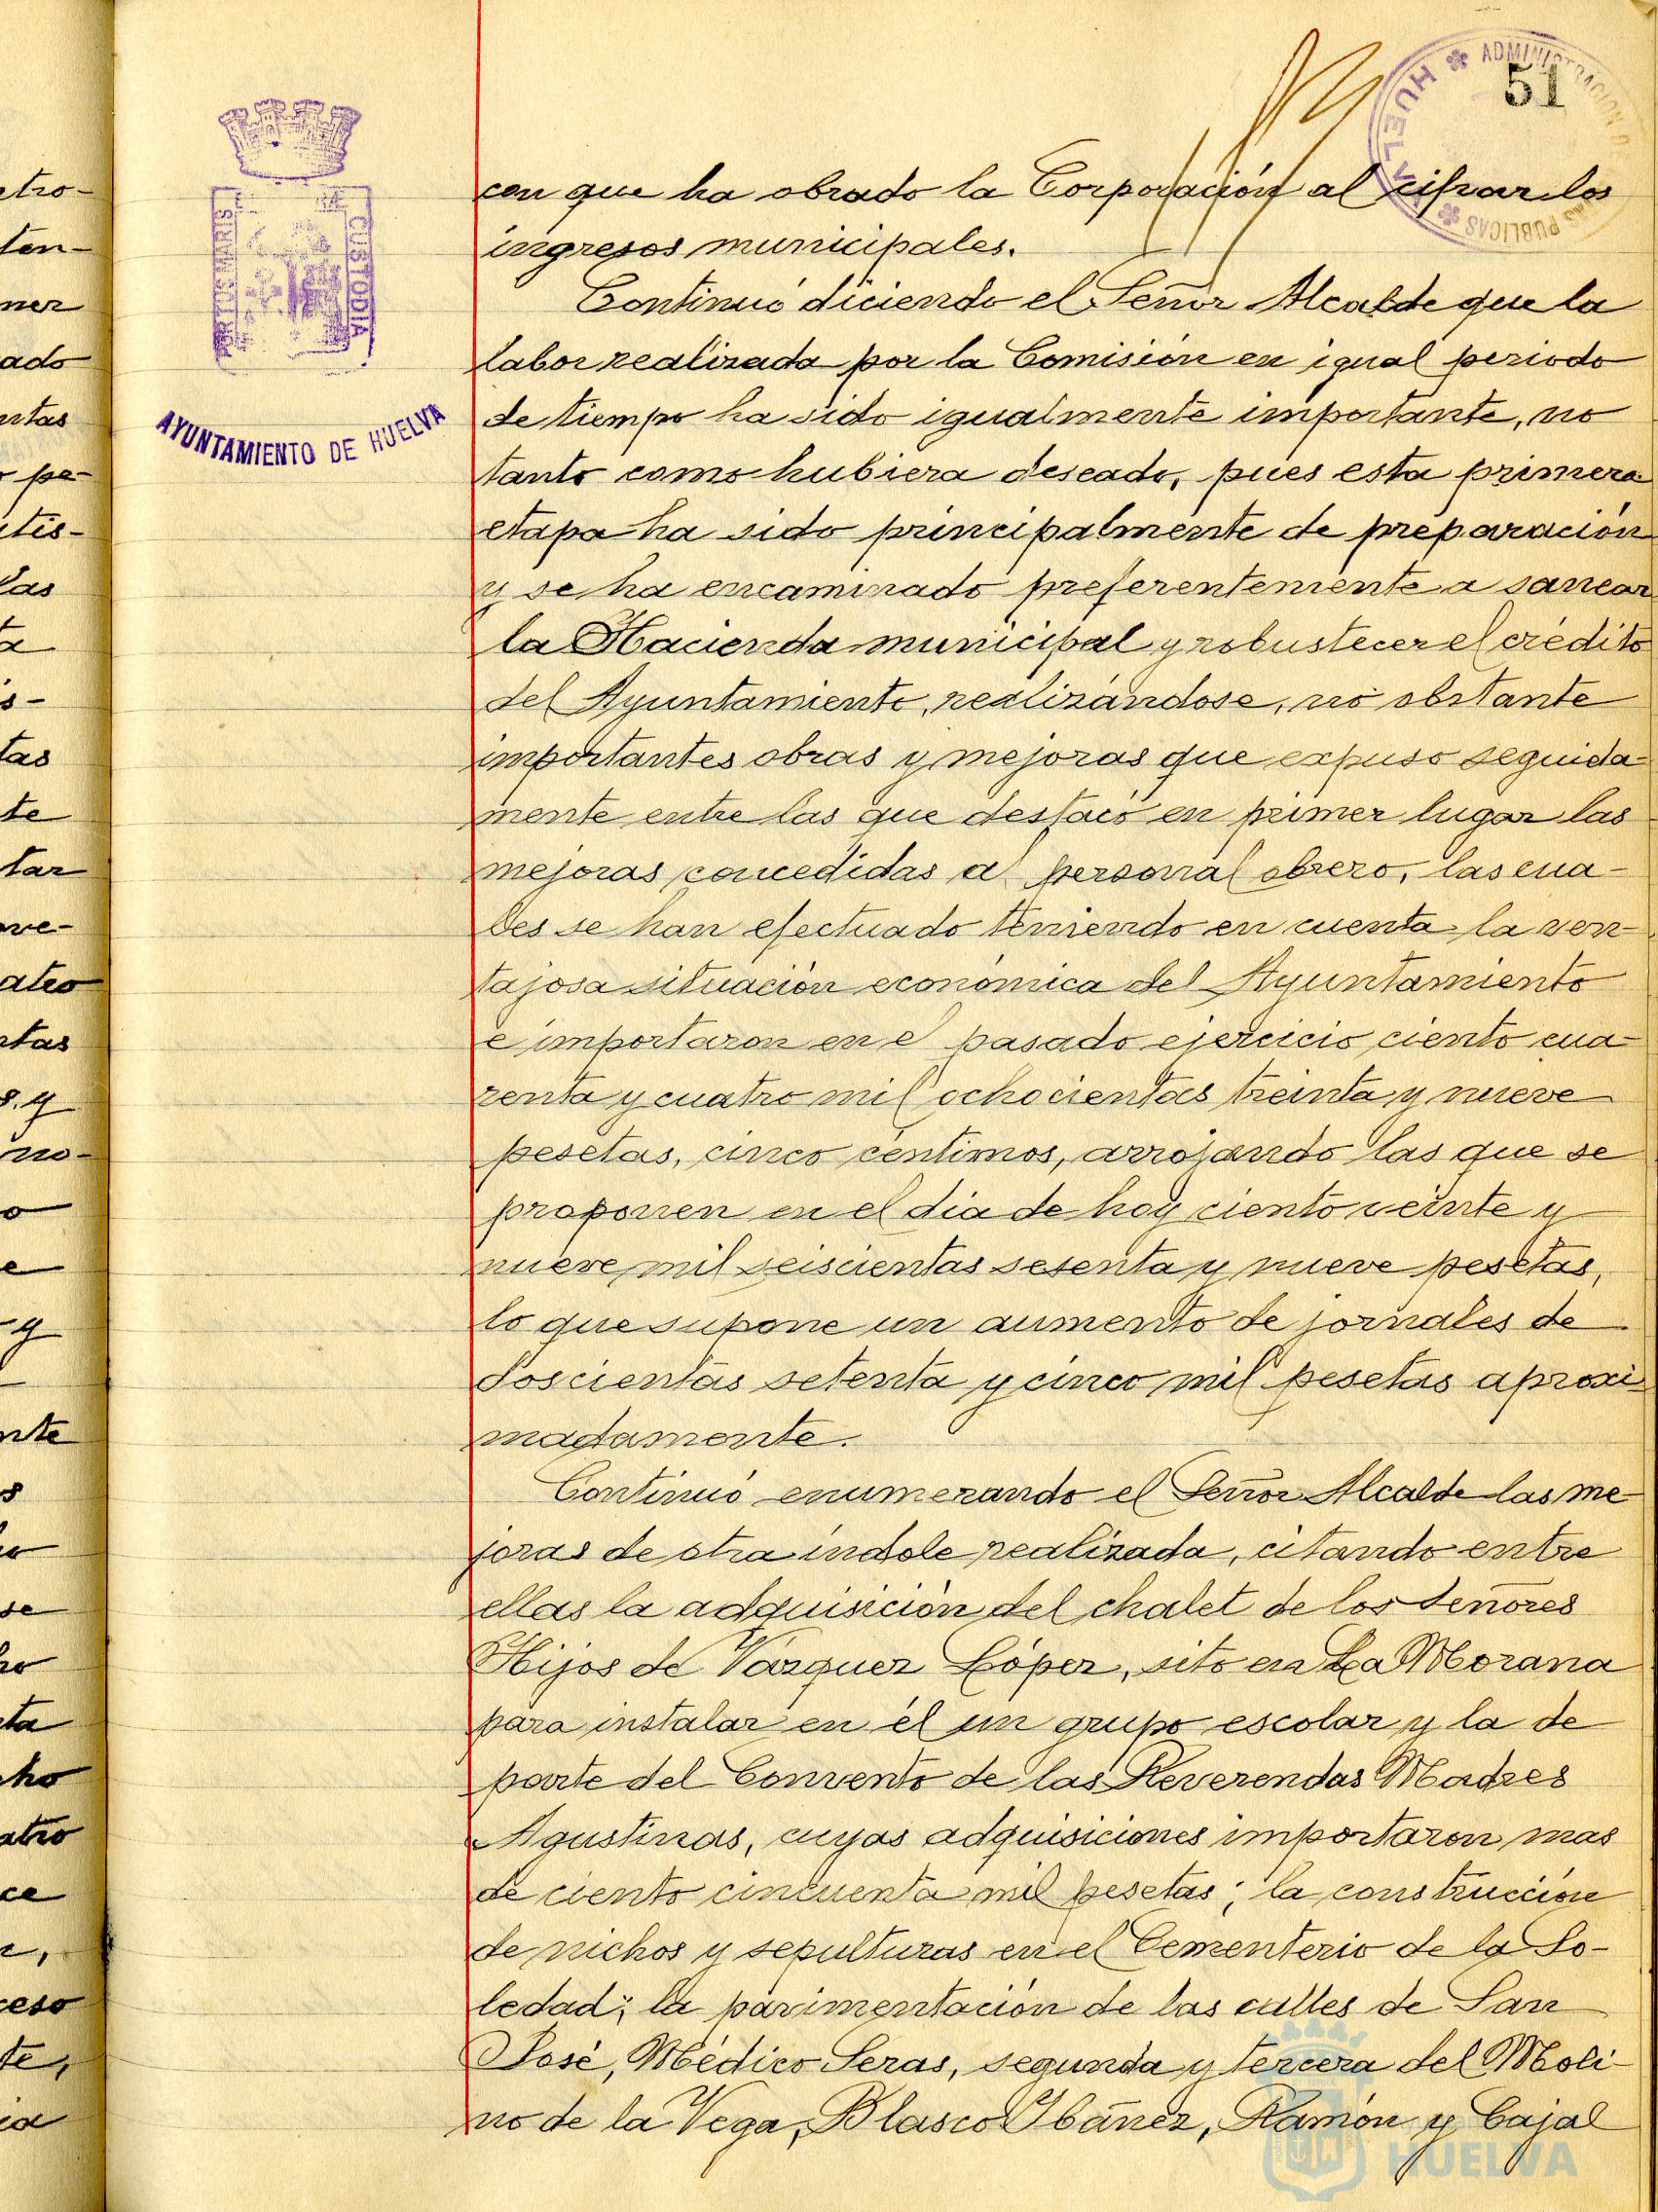 51
ADMINISTRACION
PUBLICAS
HUELVA
PORTUS MARIS
CUSTODIA
AYUNTAMIENTO DE HUELVA
con que ha obrado la Corporación al cifrar los
ingresos municipales.
Continuó diciendo el Señor Alcalde que la
labor realizada por la Comisión en igual periodo
de tiempo ha sido igualmente importante, no
tanto como hubiera deseado, pues esta primera
etapa ha sido principalmente de preparación
y se ha encaminado preferentemente a sanear
la Hacienda municipal y robustecer el crédito
del Ayuntamiento, realizándose, no obstante
importantes obras y mejoras que expuso seguida-
mente entre las que destacó en primer lugar las
mejoras concedidas al personal obrero, las cua-
les se han efectuado teniendo en cuenta la ven-
tajosa situación económica del Ayuntamiento
e importaron en el pasado ejercicio ciento cua-
renta y cuatro mil ochocientas treinta y nueve
pesetas, cinco céntimos, arrojando las que se
proponen en el día de hoy ciento veinte y
nueve mil seiscientas sesenta y nueve pesetas,
lo que supone un aumento de jornales de
doscientas setenta y cinco mil pesetas aproxi-
madamente.
Continuó enumerando el Señor Alcalde las me-
joras de otra índole realizada, citando entre
ellas la adquisición del chalet de los Señores
Hijos de Vázquez López, sito en La Morana
para instalar en él un grupo escolar y la de
parte del Convento de las Reverendas Madres
Agustinas, cuyas adquisiciones importaron mas
de ciento cincuenta mil pesetas; la construcción
de nichos y sepulturas en el Cementerio de la So-
ledad; la pavimentación de las calles de San
José, Médico Seras, segunda y tercera del Moli-
no de la Vega, Blasco Ibáñez, Ramón y Cajal
HUELVA